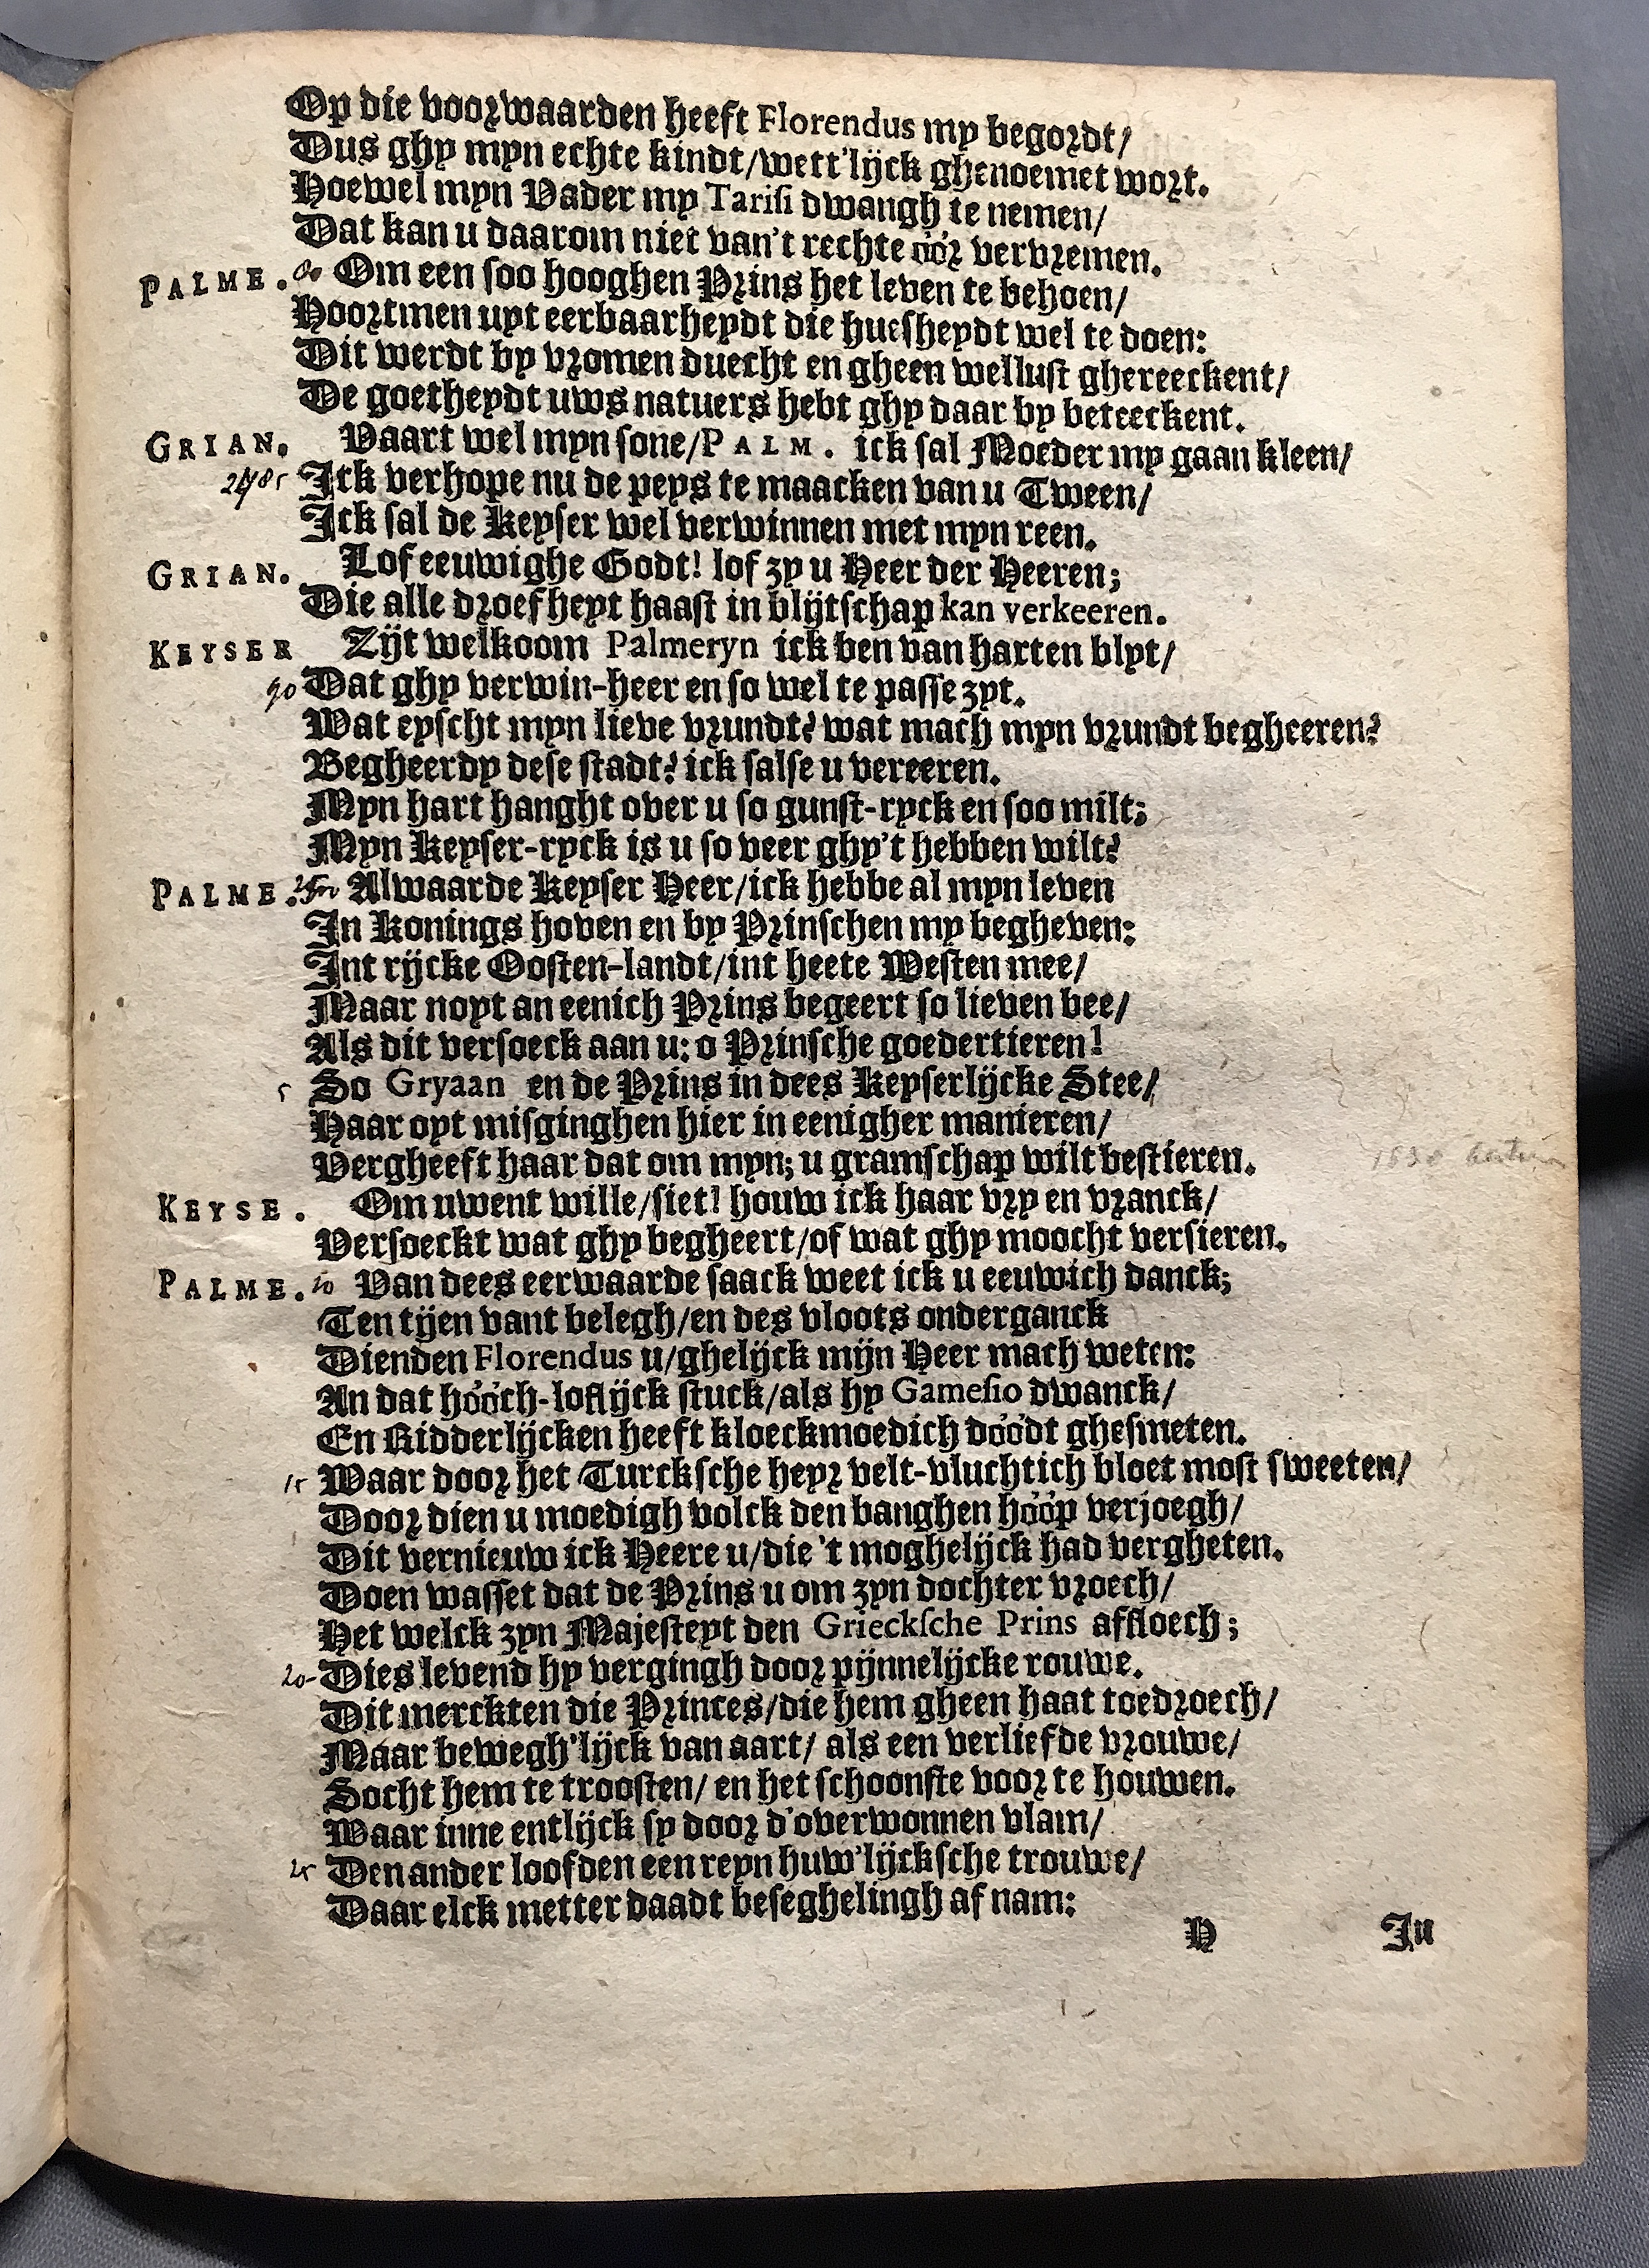 Op die voorwaarden heeft Florendus my begordt/
Dus ghy myn echte kindt/wett'lijck ghenoemet wort.
Hoewel myn Vader my Tarisi dwangh te nemen/
Dat kan u daarom niet van't rechte óór vervremen.
PALME. Om een soo hooghen Prins het leven te behoen/
Hoortmen uyt eerbaarheydt die huesheydt wel te doen:
Dit werdt by vromen duecht en gheen wellust ghereeckent/
De goetheydt uws natuers hebt ghy daar by beteeckent.
GRIAN. Vaart wel myn sone/PALM. ick sal Moeder my gaan kleen/
2485 Ick verhope nu de peys te maacken van u Tween/
Ick sal de Keyser wel verwinnen met myn reen.
GRIAN. Lof eeuwighe Godt! lof zy u Heer der Heeren;
Die alle droefheyt haast in blijtschap kan verkeeren.
KEYSER Zijt welkoom Palmeryn ick ben van harten blyt/
90 Dat ghy verwin-heer en so wel te passe zyt.
Wat eyscht myn lieve vrundt? wat mach myn vrundt begheeren?
Begheerdy dese stadt? ick salse u vereeren.
Myn hart hanght over u so gunst-ryck en soo milt;
Myn Keyser-ryck is u so veer ghy't hebben wilt?
PALME. Alwaarde Keyser Heer/ick hebbe al myn leven
In Konings hoven en by Prinschen my begheven:
Int rijcke Oosten-landt/int heete Westen mee/
Maar noyt an eenich Prins begeert so lieven bee/
Als dit versoeck aan u: o Prinsche goedertieren!
5 So Gryaan en de Prins in dees Keyserlijcke Stee/
Haar oyt misginghen hier in eenigher manieren/
Vergheeft haar dat om myn; u gramschap wilt bestieren.
KEYSE. Om uwent wille/siet! houw ick haar vry en vranck/
Versoeckt wat ghy begheert/of wat ghy moocht versieren.
PALME. 10 Van dees eerwaarde saack weet ick u eeuwich danck;
Ten tijen vant belegh/en des vloots onderganck
Dienden Florendus u/ghelijck mijn Heer mach weten:
An dat hóóch-loflijck stuck/als hy Gamesio dwanck/
En Ridderlijcken heeft kloeckmoedich dóódt ghesmeten.
15 Waar door het Turcksche heyr velt-vluchtich bloet most sweeten/
Door dien u moedigh volck den banghen hóóp verjoegh/
Dit vernieuw ick Heere u/die 't moghelijck had vergheten.
Doen wasset dat de Prins u om zyn dochter vroech/
Het welck zyn Majesteyt den Griecksche Prins affloech;
20- Dies levend hy vergingh door pijnnelijcke rouwe.
Dit merckten die Princes/die hem gheen haat toedroech/
Maar bewegh'lijck van aart/ als een verliefde vrouwe/
Socht hem te troosten/ en het schoonste voor te houwen.
Waar inne entlijck sy door d'overwonnen vlam/
25 Den ander loofden een reyn huw'lijcksche trouwe/
Daar elck metter daadt beseghelingh af nam:
H In